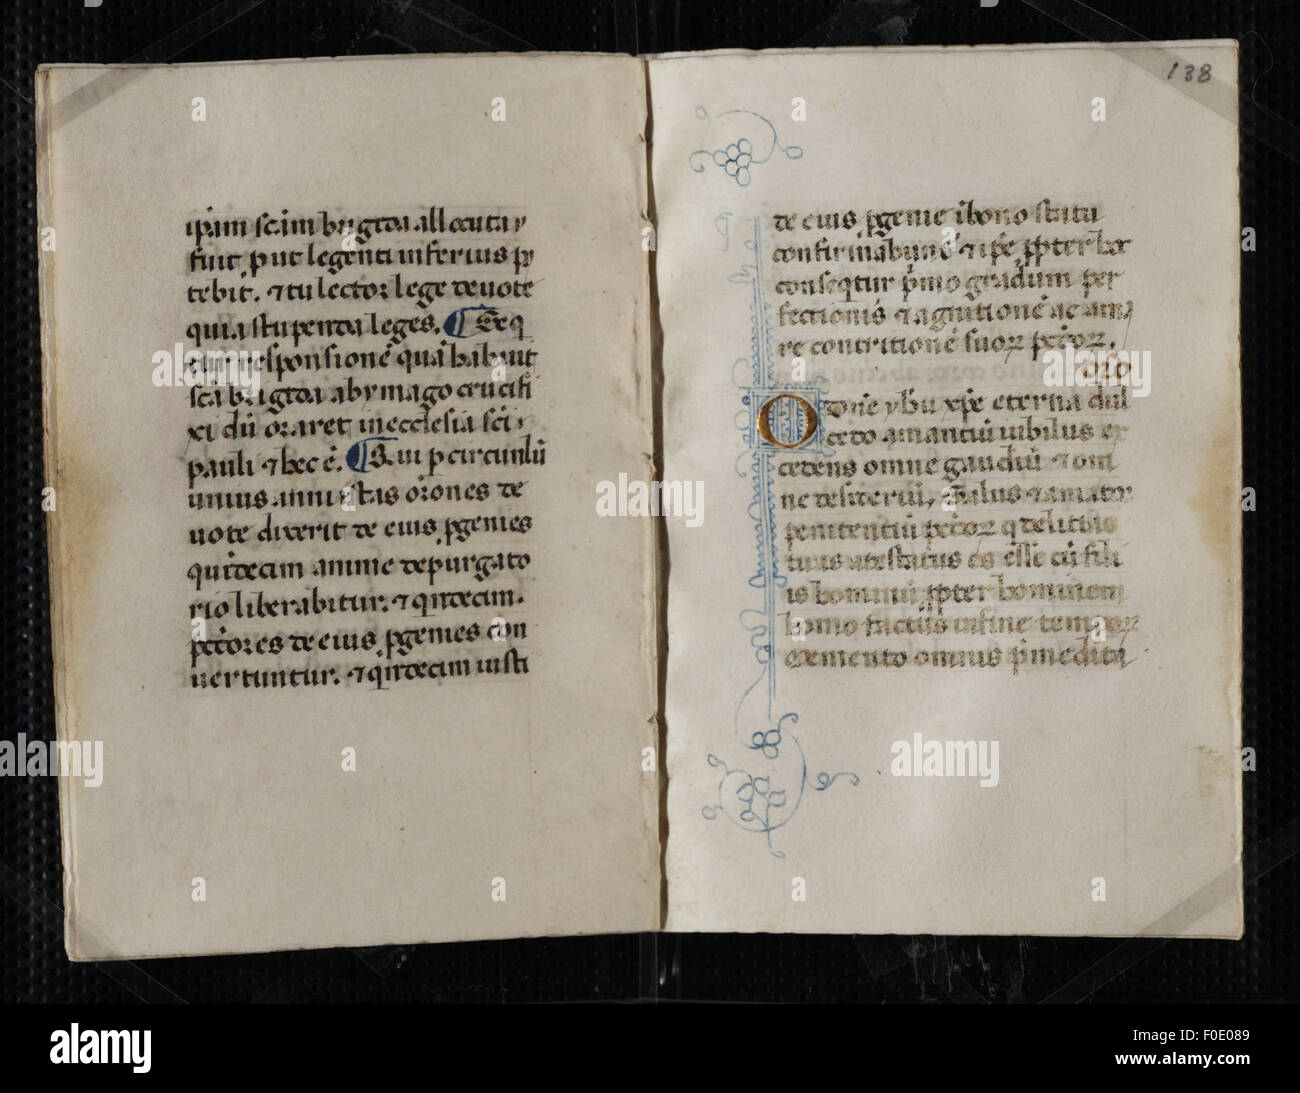 ipam scam brigida allocuta
fuit, put legenti inferius p
tebit. et tu lector lege devote
quia stupenda leges. Seq
tur responsione qua habuit
sca brigida ab ymago crucifi
xi du oraret in ecclesia sci
pauli et hec e. Si qui p circulu
unius anni istas orones de
vote dixerit de eius pgenies
quidecim anime de purgato
rio liberabitur. et quidecim
pctores de eius pgenies con
vertuntur. et quidecim iusti
138
de eius pgenie i bono statu
confirmabunt et ipe ppter hoc
consequtur pmo gradum per
fectionis et agnitione ac ama
re contritione suorum pctorum.
oro
O dne yhu xpe eterna dul
cedo amantiu iubilus ex
cedens omne gaudiu et om
ne desideriu, salus et amator
penitentiu pctorum q delitias
tuas atestatus es esse cu fili
is hominu ppter hominem
homo factus in fine temporum
Memento omnius pmedita
alamy
a
alamy
Image ID: F0E089
www.alamy.com